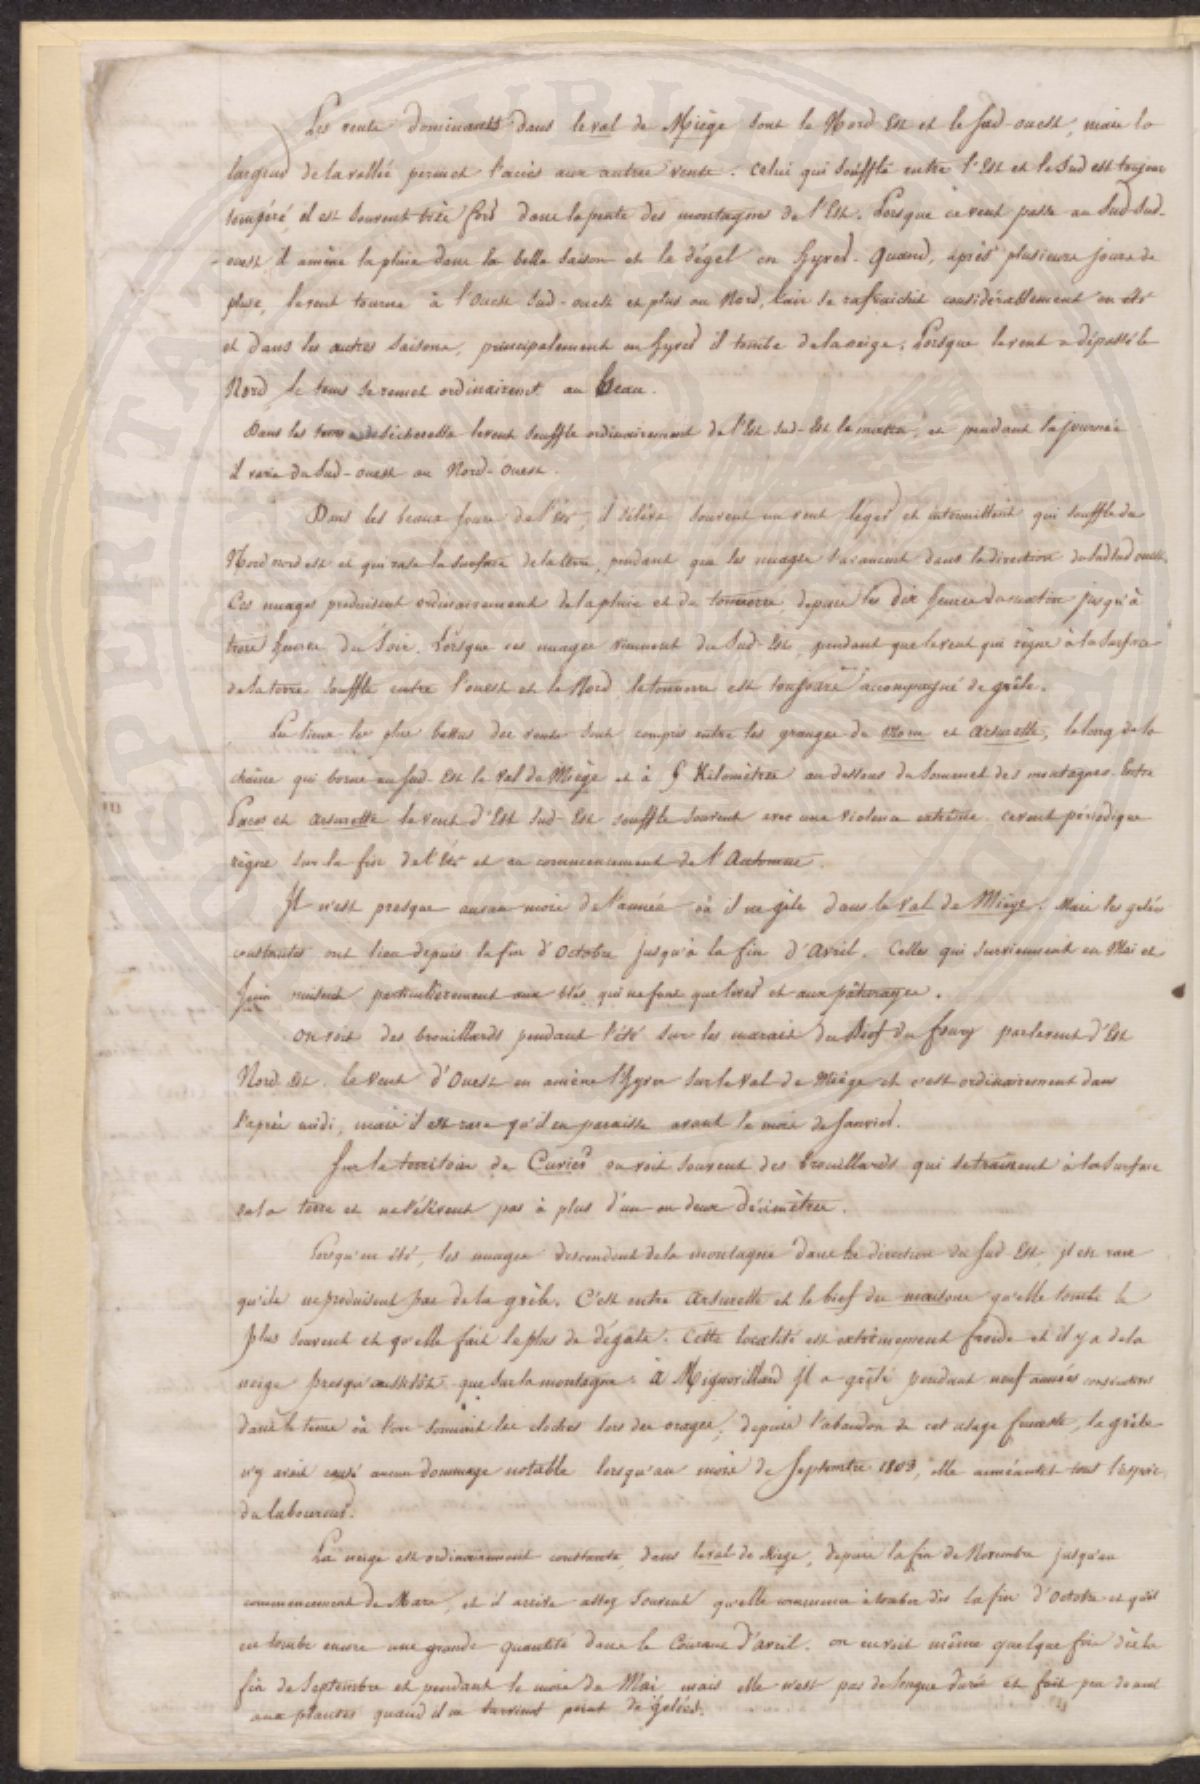 Les vents dominants dans le val de Miège sont le Nord Est et le Sud ouest, mais la
largeur de la vallée permet l'accès aux autres vents. celui qui souffle entre l'Est et le Sud est toujours
tempéré, il est souvent très fort dans la pente des montagnes de l'Est. Lorsque ce vent passe au Sud-Sud-
ouest il amène la pluie dans la belle saison et le dégel en hyver. Quand, après plusieurs jours de
pluie, le vent tourne à l'ouest Sud-ouest et plus au Nord, l'air se rafraichit considérablement en été
et dans les autres saisons, principalement en hyver il tombe de la neige. Lorsque le vent a dépassé le
Nord, le tems se remet ordinairement au beau.
Dans les tems de sécheresse le vent souffle ordinairement de l'Est Sud-Est le matin, et pendant la journée
il varie du Sud-ouest au Nord-Ouest.
Dans les beaux jours de l'été, il s'élève souvent un vent léger et intermittent qui souffle du
Nord nord est et qui rase la surface de la terre, pendant que les nuages s'avancent dans la direction du sud sud ouest.
Ces nuages produisent ordinairement de la pluie et du tonnerre, depuis les dix heures du matin jusqu'à
trois heures du Soir. Lorsque ces nuages viennent du Sud-Est, pendant que le vent qui règne à la Surface
de la terre souffle entre l'ouest et le Nord, le tonnerre est toujours accompagné de grêle.
Les lieux les plus battus des vents sont compris entre les granges de et Arsurette, le long de la
chaîne qui borne au Sud-Est le Val de Miège et à Kilomètres au dessous du Sommet des montagnes. Entre
et Arsurette le vent d'Est Sud-Est souffle souvent avec une violence extrême. ce vent périodique
règne sur la fin de l'été et au commencement de l'Automne.
Il n'est presque aucun mois de l'année où il ne gèle dans le Val de Miège. Mais les gelées
constantes ont lieu depuis la fin d'Octobre jusqu'à la fin d'Avril. Celles qui surviennent en Mai et
Juin nuisent particulièrement aux blés, qui ne font que lever et aux pâturages.
On voit des brouillards pendant l'été sur les marais du Bief du fourg par le vent d'Est
Nord-Est. le vent d'Ouest en amène l'hyver sur le val de Miège et c'est ordinairement dans
l'après midi, mais il est rare qu'il en paraisse avant le mois de Janvier.
Sur le territoire de Cuvier on voit souvent des brouillards qui se traînent à la surface
de la terre et ne s'élèvent pas à plus d'un ou deux décimètres.
Lorsqu'en été, les nuages descendent de la montagne dans la direction du Sud-Est, il est rare
qu'ils ne produisent pas de la grêle. C'est entre Arsurette et le bief des maisons qu'elle tombe le
plus souvent et qu'elle fait le plus de dégats. Cette localité est extrêmement froide et il y a de la
neige presqu'aussitôt que sur la montagne. à Mignovillard il a grêlé pendant neuf années consécutives
dans le tems où l'on sonnait les cloches lors des orages; depuis l'abandon de cet usage funeste, la grêle
n'y avait causé aucun dommage notable lorsqu'au mois de Septembre 1803, elle anéantit tout l'espoir
du laboureur.
La neige est ordinairement constante, dans le val de Miège, depuis la fin de Novembre jusqu'au
commencement de Mars, et il arrive assez souvent qu'elle commence à tomber dès la fin d'Octobre et qu'il
en tombe encore une grande quantité dans le Courant d'avril. on en voit même quelque fois dès la
fin de Septembre et pendant le mois de Mai mais elle n'est pas de longue durée et fait peu de mal
aux plantes quand il ne survient point de gelées.